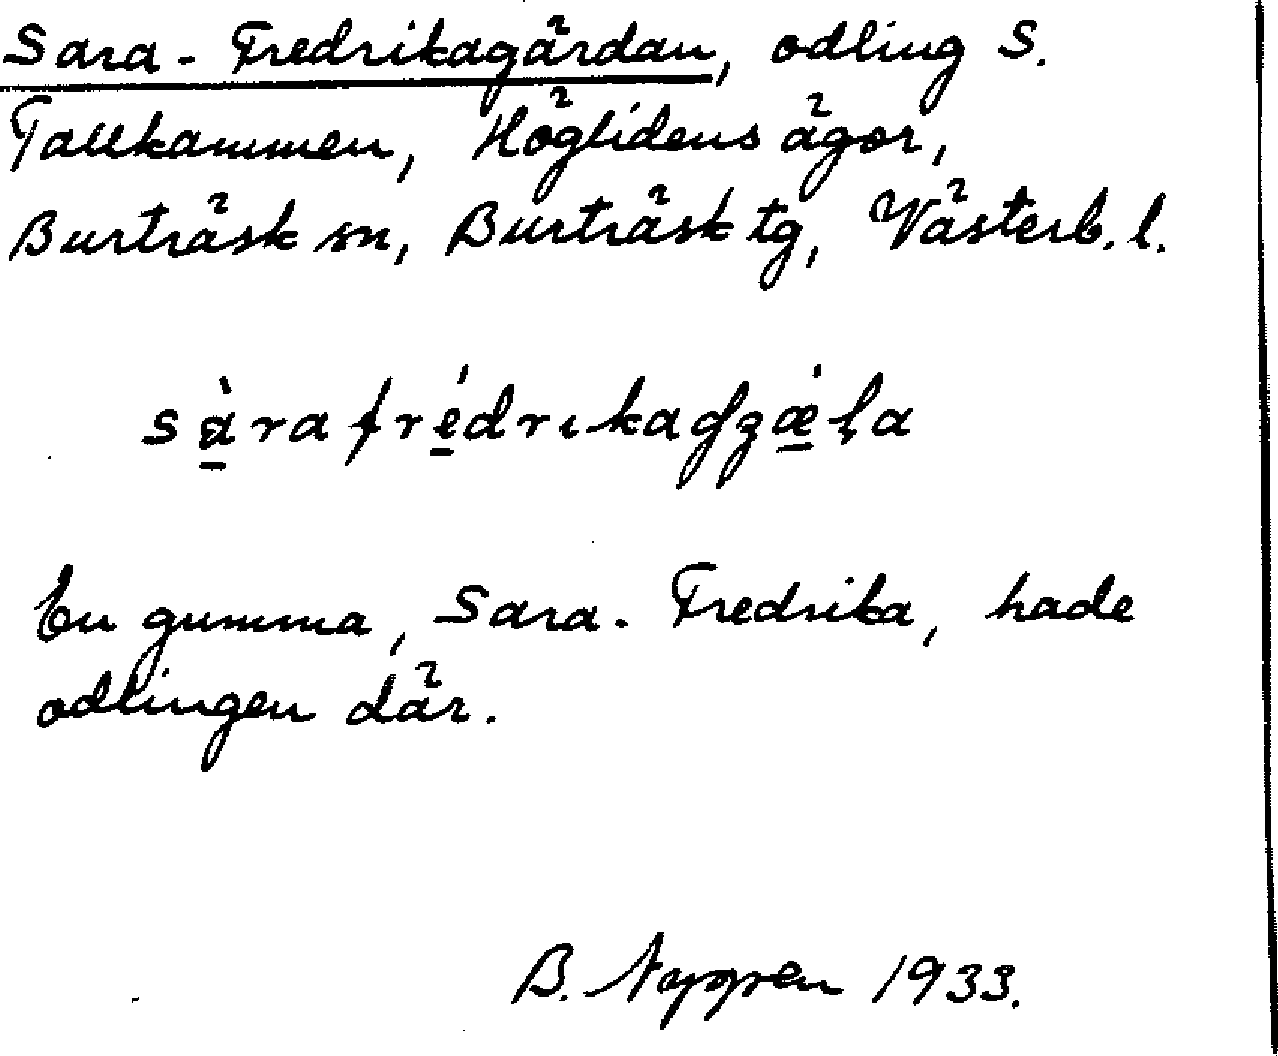 Sara-Fredrikagärdan, odling S.
Tallkammen, Höglidens ägor,
Burträsk sn, Burträsk tg, Västerb. l.
sàrafrédrıkagʒǽḷa
En gumma, Sara-Fredrika, hade
odlingen där.
B. Nygren 1933.